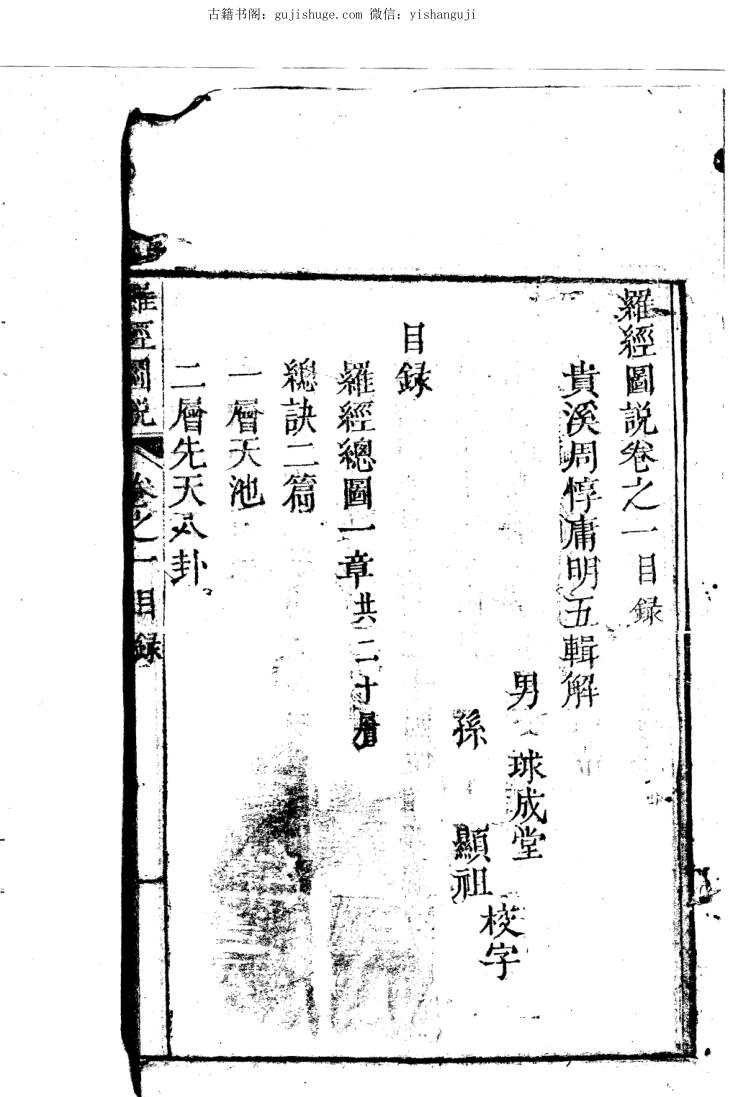 古籍书阁：gujishuge.com 微信：yishanguji
羅經圖説卷之一目録
貴溪周惇庸明五輯解
男 球成堂
孫 顯祖
校字
目録
羅經總圖一章共二十層
總訣二篇
一層天池
二層先天八卦
羅經圖説 卷之一 目録